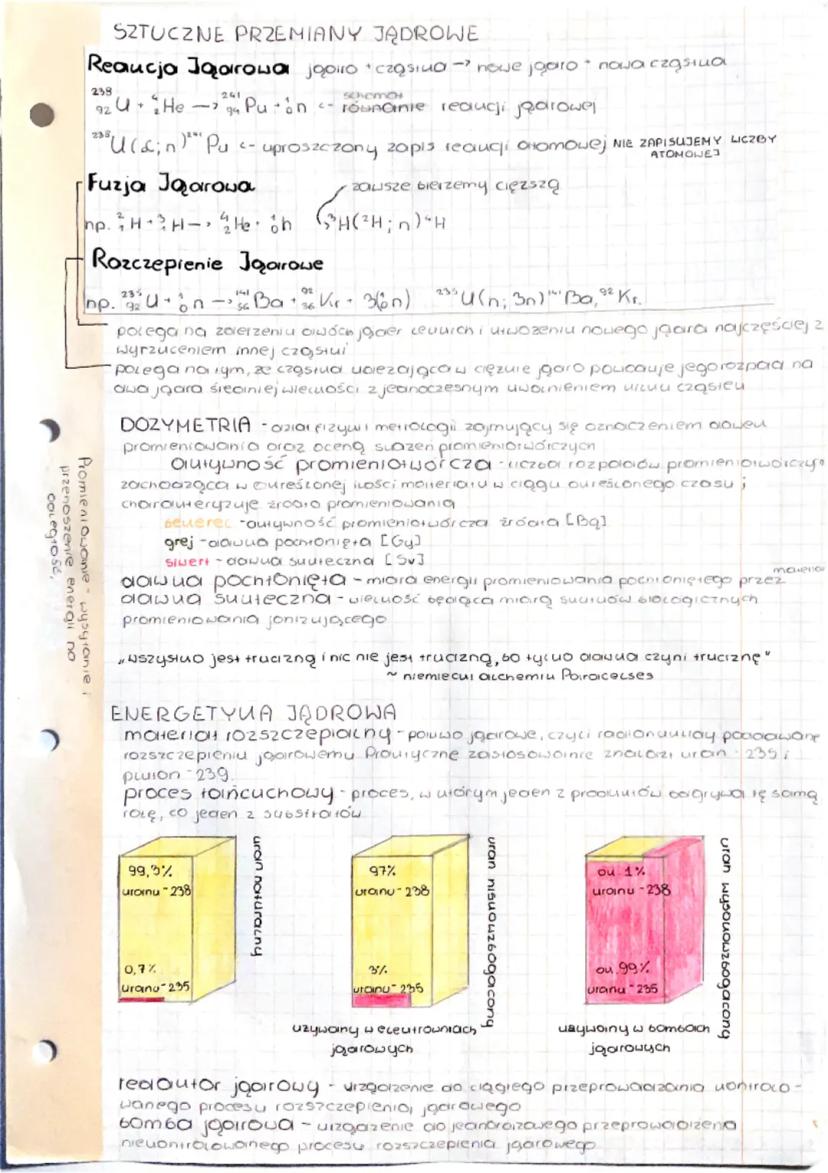 SZTUCZNE PRZEMIANY JĄDROWE
Reakcja Jądrowa jądro + cząstka -> nowe jądro + nowa cząstka
²³⁸₉₂U + ⁴₂He -> ²⁴¹₉₄Pu + ¹₀n <- schemat równanie reakcji jądrowej
²³⁸U(α;n)²⁴¹Pu <- uproszczony zapis reakcji atomowej NIE ZAPISUJEMY LICZBY
ATOMOWEJ
Fuzja Jądrowa zawsze bierzemy cięższą
np. ²₁H + ³₁H -> ⁴₂He + ¹₀n ³H(²H; n)⁴H
Rozczepienie Jądrowe
np. ²³⁵₉₂U + ¹₀n -> ¹⁴¹₅₆Ba + ⁹²₃₆Kr + 3(¹₀n) ²³⁵U(n; 3n)¹⁴¹Ba, ⁹²Kr.
polega na zderzeniu dwóch jąder lekkich i utworzeniu nowego jądra najczęściej z
wyrzuceniem innej cząstki
polega na tym, że cząstka uderzająca w ciężkie jądro powoduje jego rozpad na
dwa jądra średniej wielkości z jednoczesnym uwolnieniem kilku cząstek
DOZYMETRIA - dział fizyki i metrologii zajmujący się oznaczeniem dawek
promieniowania oraz oceną skażeń promieniotwórczych
aktywność promieniotwórcza - liczba rozpadów promieniotwórczy
zachodząca w określonej ilości materiału w ciągu określonego czasu ;
charakteryzuje źródło promieniowania
bekerel - aktywność promieniotwórcza źródła [Bq]
grej - dawka pochłonięta [Gy]
siwert - dawka skuteczna [Sv]
dawka pochłonięta - miara energii promieniowania pochłoniętego przez
dawka skuteczna - wielkość będąca miarą skutków biologicznych
promieniowania jonizującego
Promieniowanie - wysyłanie i
przenoszenie energii na
odległość,
„wszystko jest trucizną i nic nie jest trucizną, bo tylko dawka czyni truciznę"
~ niemiecki alchemik Paracelses
ENERGETYKA JĄDROWA
materiał rozszczepialny - paliwo jądrowe, czyli radionuklidy poddawane
rozszczepieniu jądrowemu. Praktyczne zastosowanie znalazł uran - 235 i
pluton - 239.
proces łańcuchowy - proces, w którym jeden z produktów odgrywa tę samą
rolę, co jeden z substratów
99,3%
uranu - 238
0,7%
uranu - 235
uran naturalny
97%
uranu - 238
3%
uranu - 235
uran niskowzbogacony
używany w elektrowniach
jądrowych
ok. 1%
uranu - 238
ok. 99%
uranu - 235
uran wysokowzbogacony
używany w bombach
jądrowych
reaktor jądrowy - urządzenie do ciągłego przeprowadzania kontrolo-
wanego procesu rozszczepienia jądrowego
bomba jądrowa - urządzenie do jednorazowego przeprowadzenia
niekontrolowanego procesu rozszczepienia jądrowego